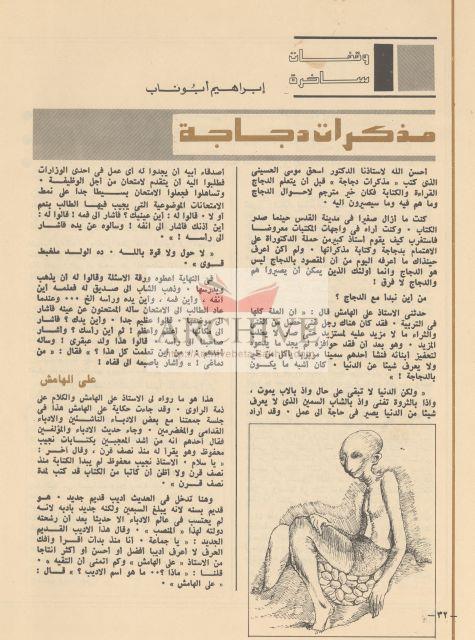 وقفات
ساخرة
إبراهيم أبوناب
مذكرات دجاجة
احسن الله لاستاذنا الدكتور اسحق موسى الحسيني
الذي كتب « مذكرات دجاجة » قبل أن يتعلم الدجاج
القراءة والكتابة فكان خير مترجم لاحوال الدجاج
وما هم فيه وما سيصيرون اليه ٠
كنت ما ازال صغيرا في مدينة القدس حينما صدر
الكتاب ٠ وكنت أراه في واجهات المكتبات معروضا
فاستغرب كيف يقوم استاذ كبير من حملة الدكتوراة على
الاهتمام بدجاجة وكتابة مذكراتها ٠ ولم اكن اعرف
حينذاك ما اعرفه اليوم من أن المقصود بالدجاج ليس
هو الدجاج وانما أولئك الذين يمكن أن يصيروا هم
والدجاج لا فرق !
من أين نبدا مع الدجاج ؟
حدثني الاستاذ علي الهامش قال : « ان العلة كلها
في التربية ٠ فقد كان هناك رجل
والثراء ما لا مزيد عليه لمستزيد
المزيد ٠ وهو بعد أن فقد حوافزه لم يعد
لتحفيز ابنائه فنشا احدهم سمينا
ولا يعرف شيئا عن الدنيا ٠ كان اشبه ما يكون
بالدجاجة !
« ولكن الدنيا لا تبقى على حال واذ بالاب يموت ،
واذا بالثروة تفنى واذ بالشاب السمين الذي لا يعرف
شيئا من الدنيا يصير في حاجة الى عمل ٠ وقد أراد
اصدقاء ابيه ان يجدوا له اي عمل في احدى الوزارات
فطلبوا اليه أن يتقدم لامتحان من أجل الوظيفة ٠
وتساهلوا فجعلوا الامتحان بسيطا جدا على نمط
الامتحانات الموضوعية التي يجيب فيها الطالب بنعم
أو لا ٠ قالوا له : اين عينيك ؟ فاشار الى فمه ! قالوا له :
اين اذنك فاشار الى انفه ! وسالوه عن يده فاشار
الى رأسه : !
« لا حول ولا قوة بالله ٠ ده الولد ملخبط
قوى » ٠
في النهاية اعطوه ورقة الاسئلة وقالوا له أن يذهب
ويدرسها ٠ وذهب الشاب الى صديق له فعلمه اين
انفه ، واين فمه ، واين يده ورأسه الخ ٠٠٠ وعندما
عاد الطالب الى الامتحان ساله الممتحنون عن عينه فاشار
الى عينه ٠ قالوا عظيم جدا ٠ واين يدك ؟ فاشار
واعظم ! ثم اين رأسك ؟ واشار
قالوا هذا ولد عبقري ! وساله
اين تعلمت كل هذا ؟ » فقال : « من
دماغي ! » واشار باصبعه الى قفاه !
على الهامش
هذا هو ما رواه لي الاستاذ علي الهامش والكلام على
ذمة الراوي ٠ وقد جاءت حكاية علي الهامش هذا في
جلسة جمعتنا مع بعض الادباء الناشئين والادباء
القدامى والمخضرمين ٠ وجاء حديث الادباء والمؤلفين
فقال احدهم انه من اشد المعجبين بكتابات نجيب
محفوظ وهو يقرا له منذ نصف قرن ، وقال آخر :
« يا سلام ٠ الاستاذ نجيب محفوظ لم يبدا الكتابة منذ
نصف قرن ولا أظن أن كاتبا من الكتاب قد كتب لمدة
نصف قرن » ٠
وهنا تدخل في الحديث اديب قديم جديد ٠ هو
قديم بسنه لانه يبلغ السبعين ولكنه جديد بادبه لانه
لم يحتسب في عالم الادباء الا حديثا بعد أن رشحته
دولته لهذا « المنصب » ٠ وقال هذا الاديب القديم
الجديد : « يا جماعة ٠ انا منذ بدات اقرا وافك
الحرف لا اعرف اديبا افضل أو احسن أو اكثر انتاجا
من الاستاذ « علي الهامش » وكم اتمنى أن التقيه » ٠
قلنا : « ماذا ؟٠٠ ما هو اسم الاديب ؟ » قال :
« علي الهامش » ٠
ARCHIVE
— ٣٢ —